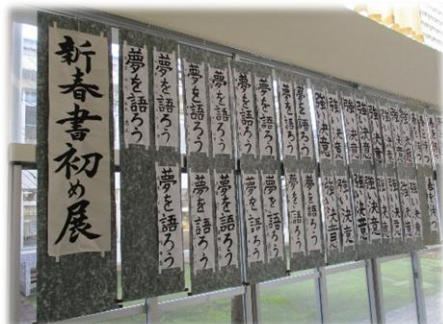 新春書初め展
夢を語ろう
夢を語ろう
夢を語ろう
夢を語ろう
夢を語ろう
夢を語ろう
夢を語ろう
夢を語ろう
強い決意
強い決意
強い決意
強い決意
強い決意
強い決意
夢を語ろう
夢を語ろう
夢を語ろう
夢を語ろう
夢を語ろう
夢を語ろう
夢を語ろう
強い決意
強い決意
強い決意
強い決意
強い決意
強い決意